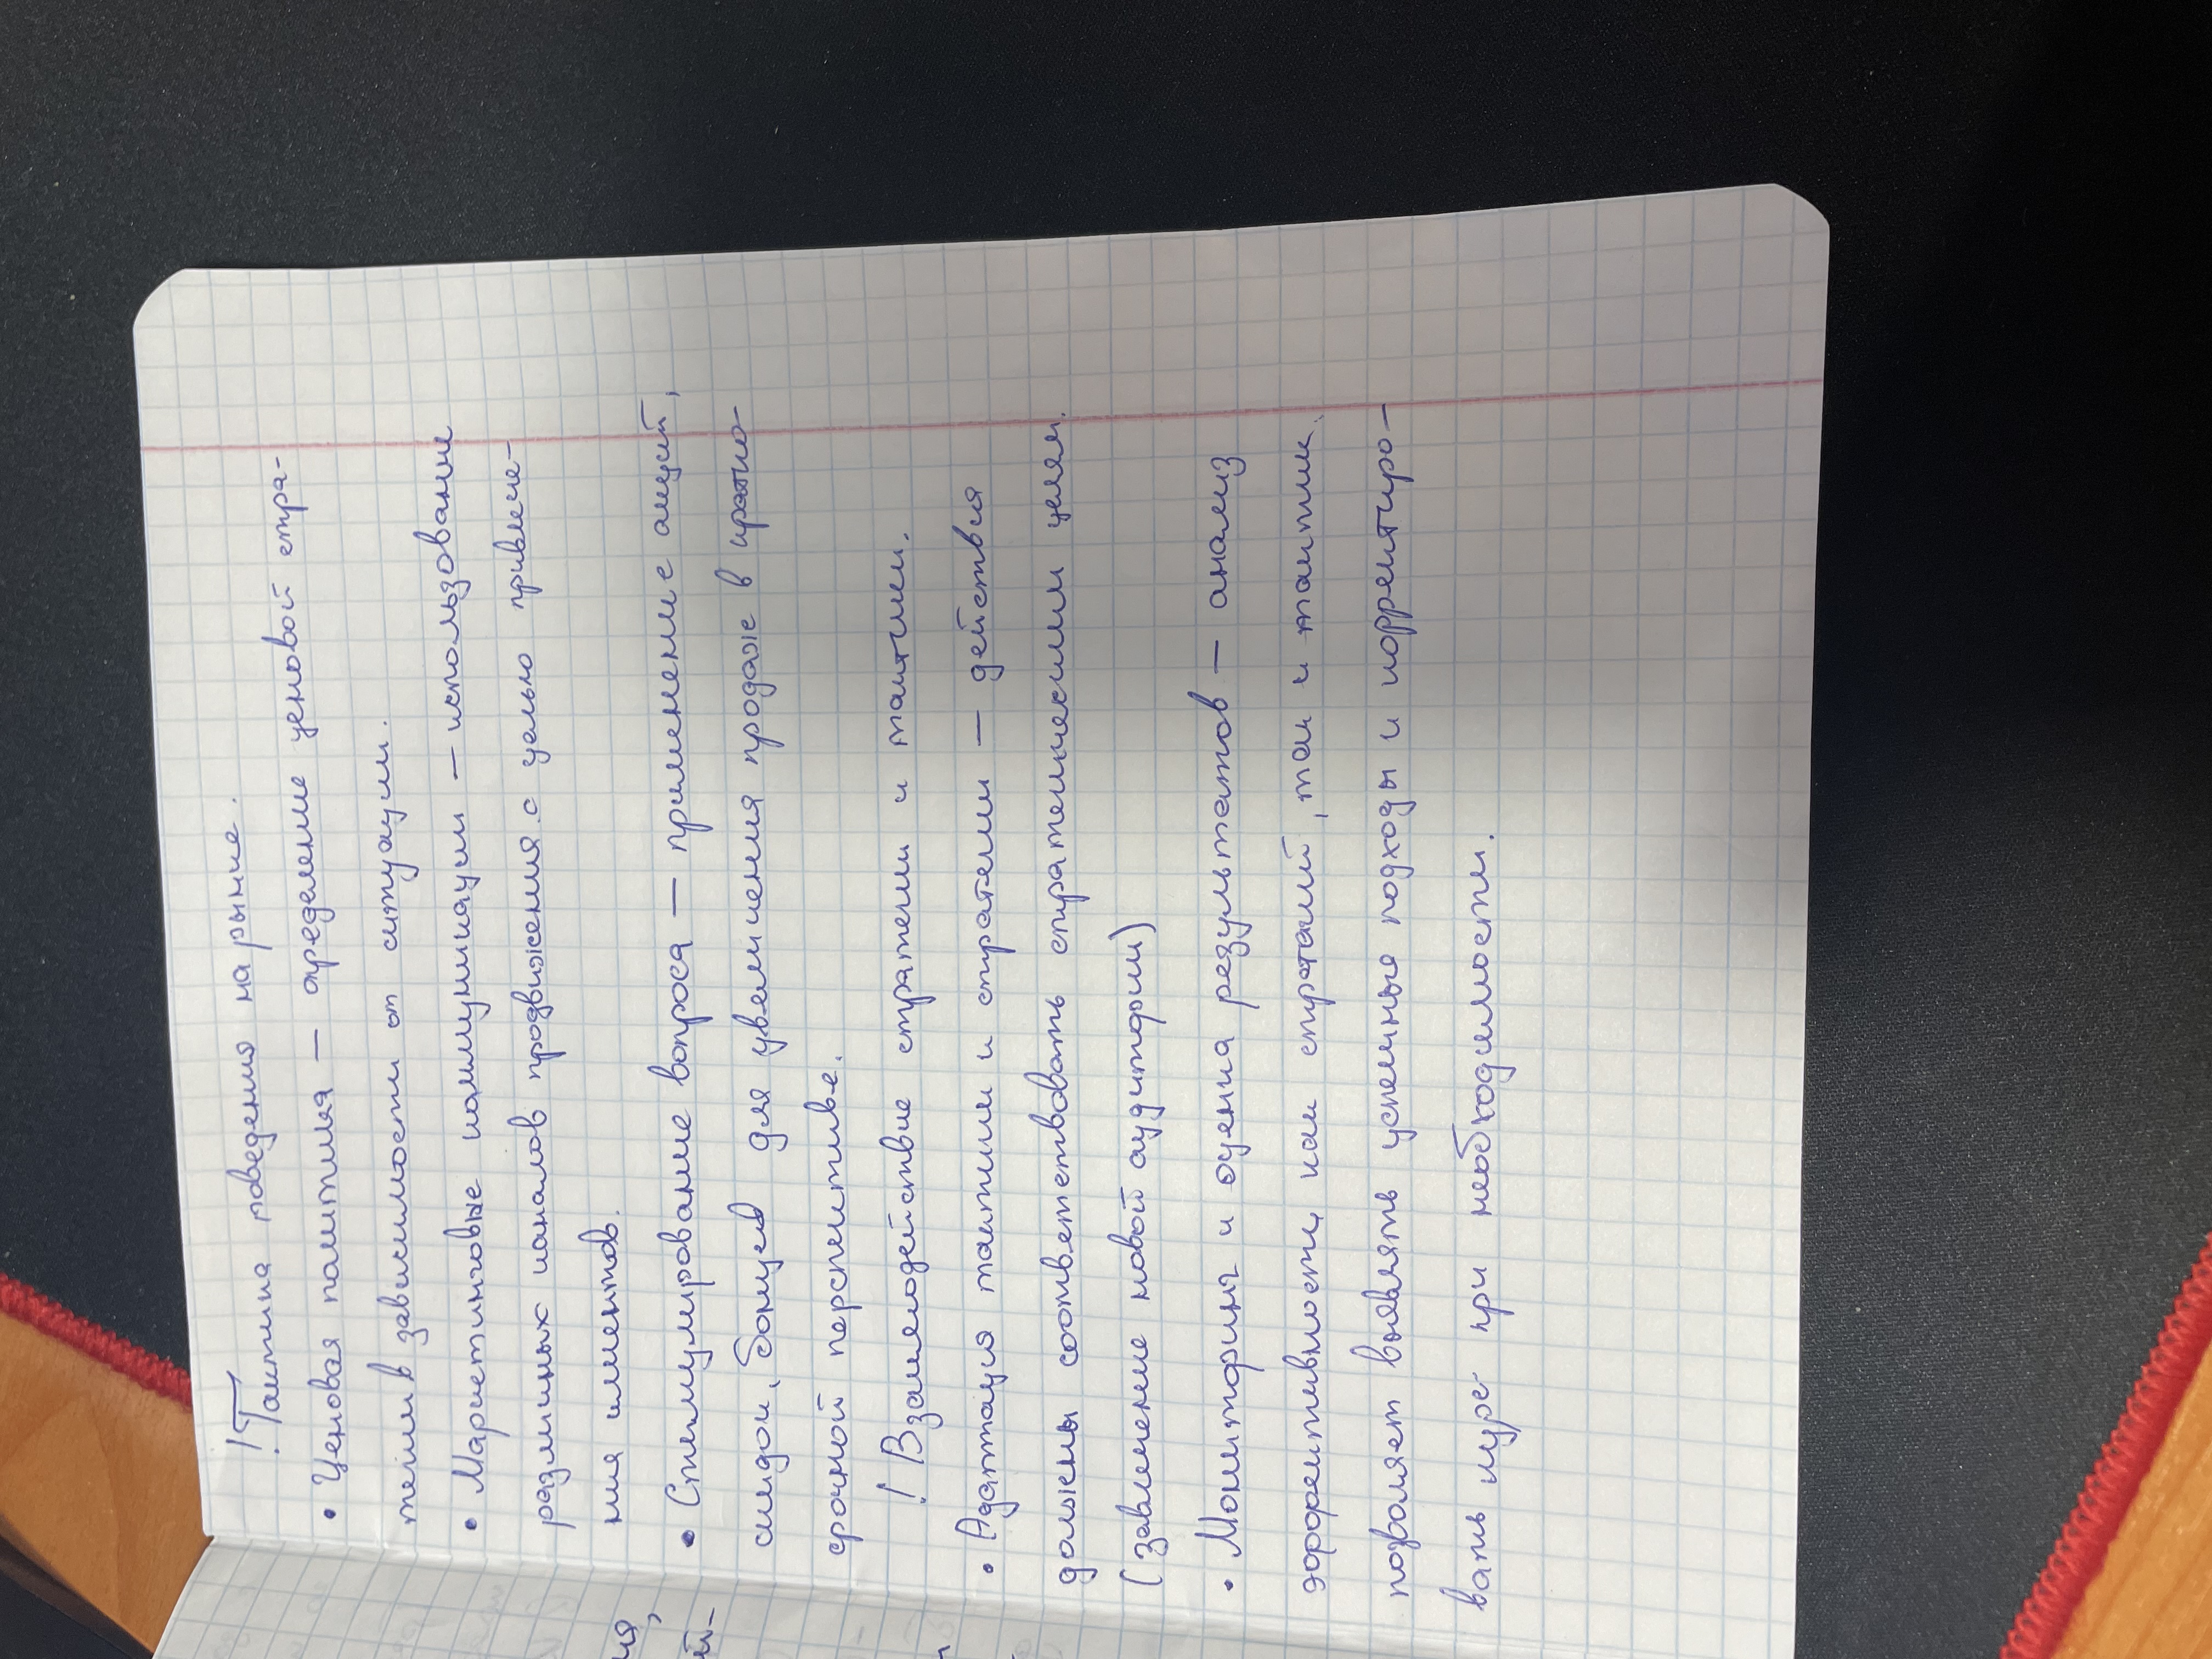 ! Тактика поведения на рынке.
• Ценовая политика — определение ценовой стра-
тегии в зависимости от ситуации.
• Маркетинговые коммуникации — использование
различных каналов продвижения с целью привлече-
ния клиентов.
• Стимулирование вопроса — применение акций,
скидок, бонусов для увеличения продаж в кратко-
срочной перспективе.
! Взаимодействие стратегии и тактики.
• Адаптация тактики и стратегии — действия
должны соответствовать стратегическим целям.
(завлечение новой аудитории)
• Мониторинг и оценка результатов — анализ
эффективности, как стратегий, так и тактик,
позволяет выявлять успешные подходы и корректиро-
вать курс при необходимости.
ия,
ай-